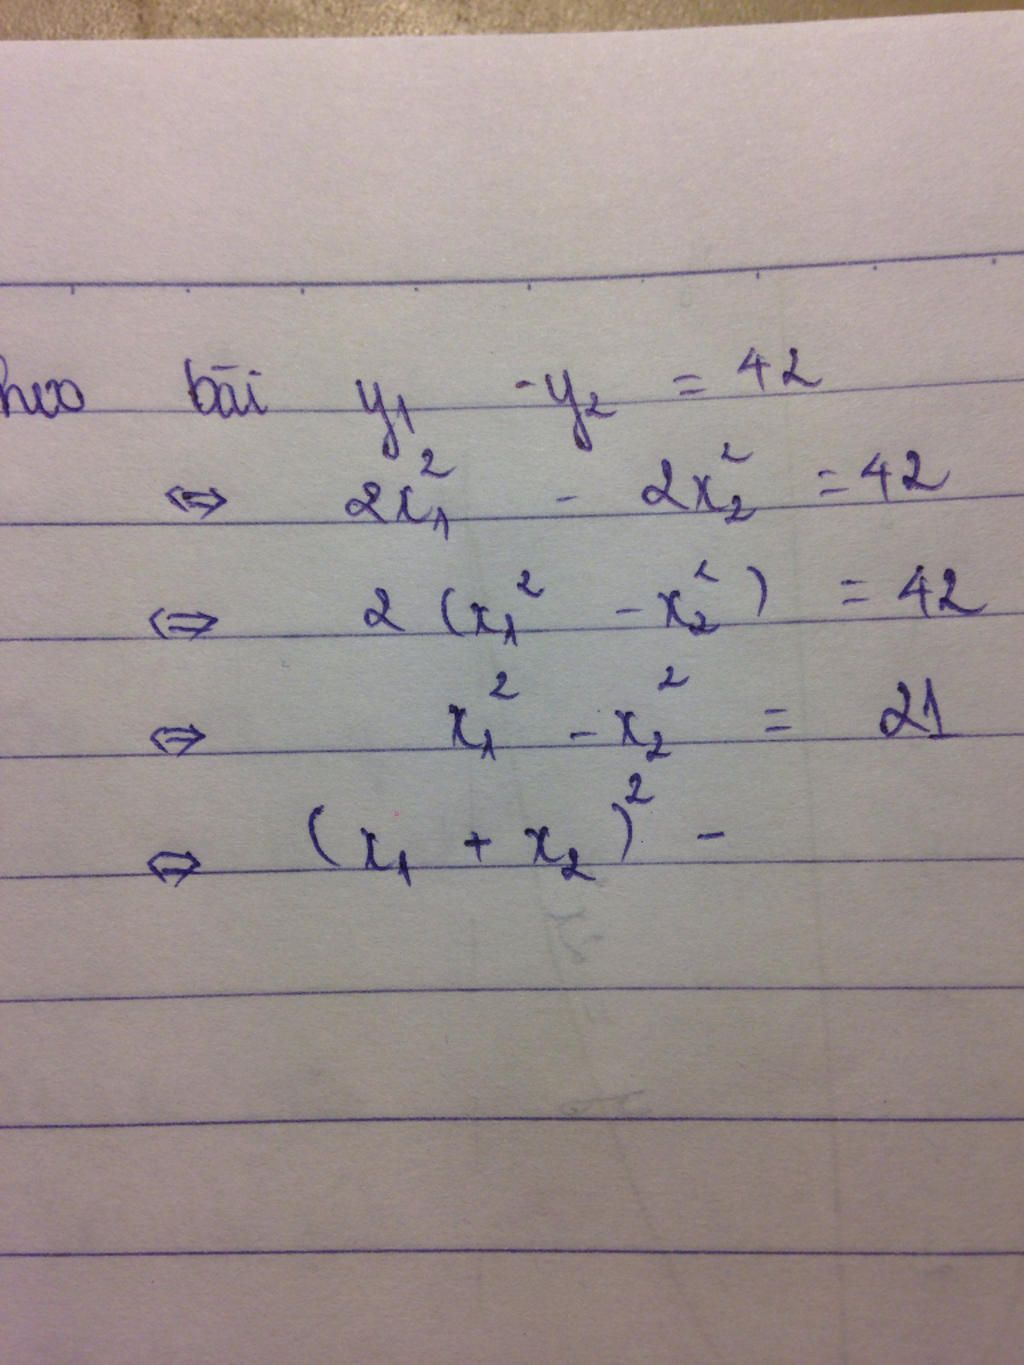 heo bài y₁ - y₂ = 42
⇔ 2x₁² - 2x₂² = 42
⇔ 2 (x₁² - x₂²) = 42
⇔ x₁² - x₂² = 21
⇔ (x₁ + x₂)² -